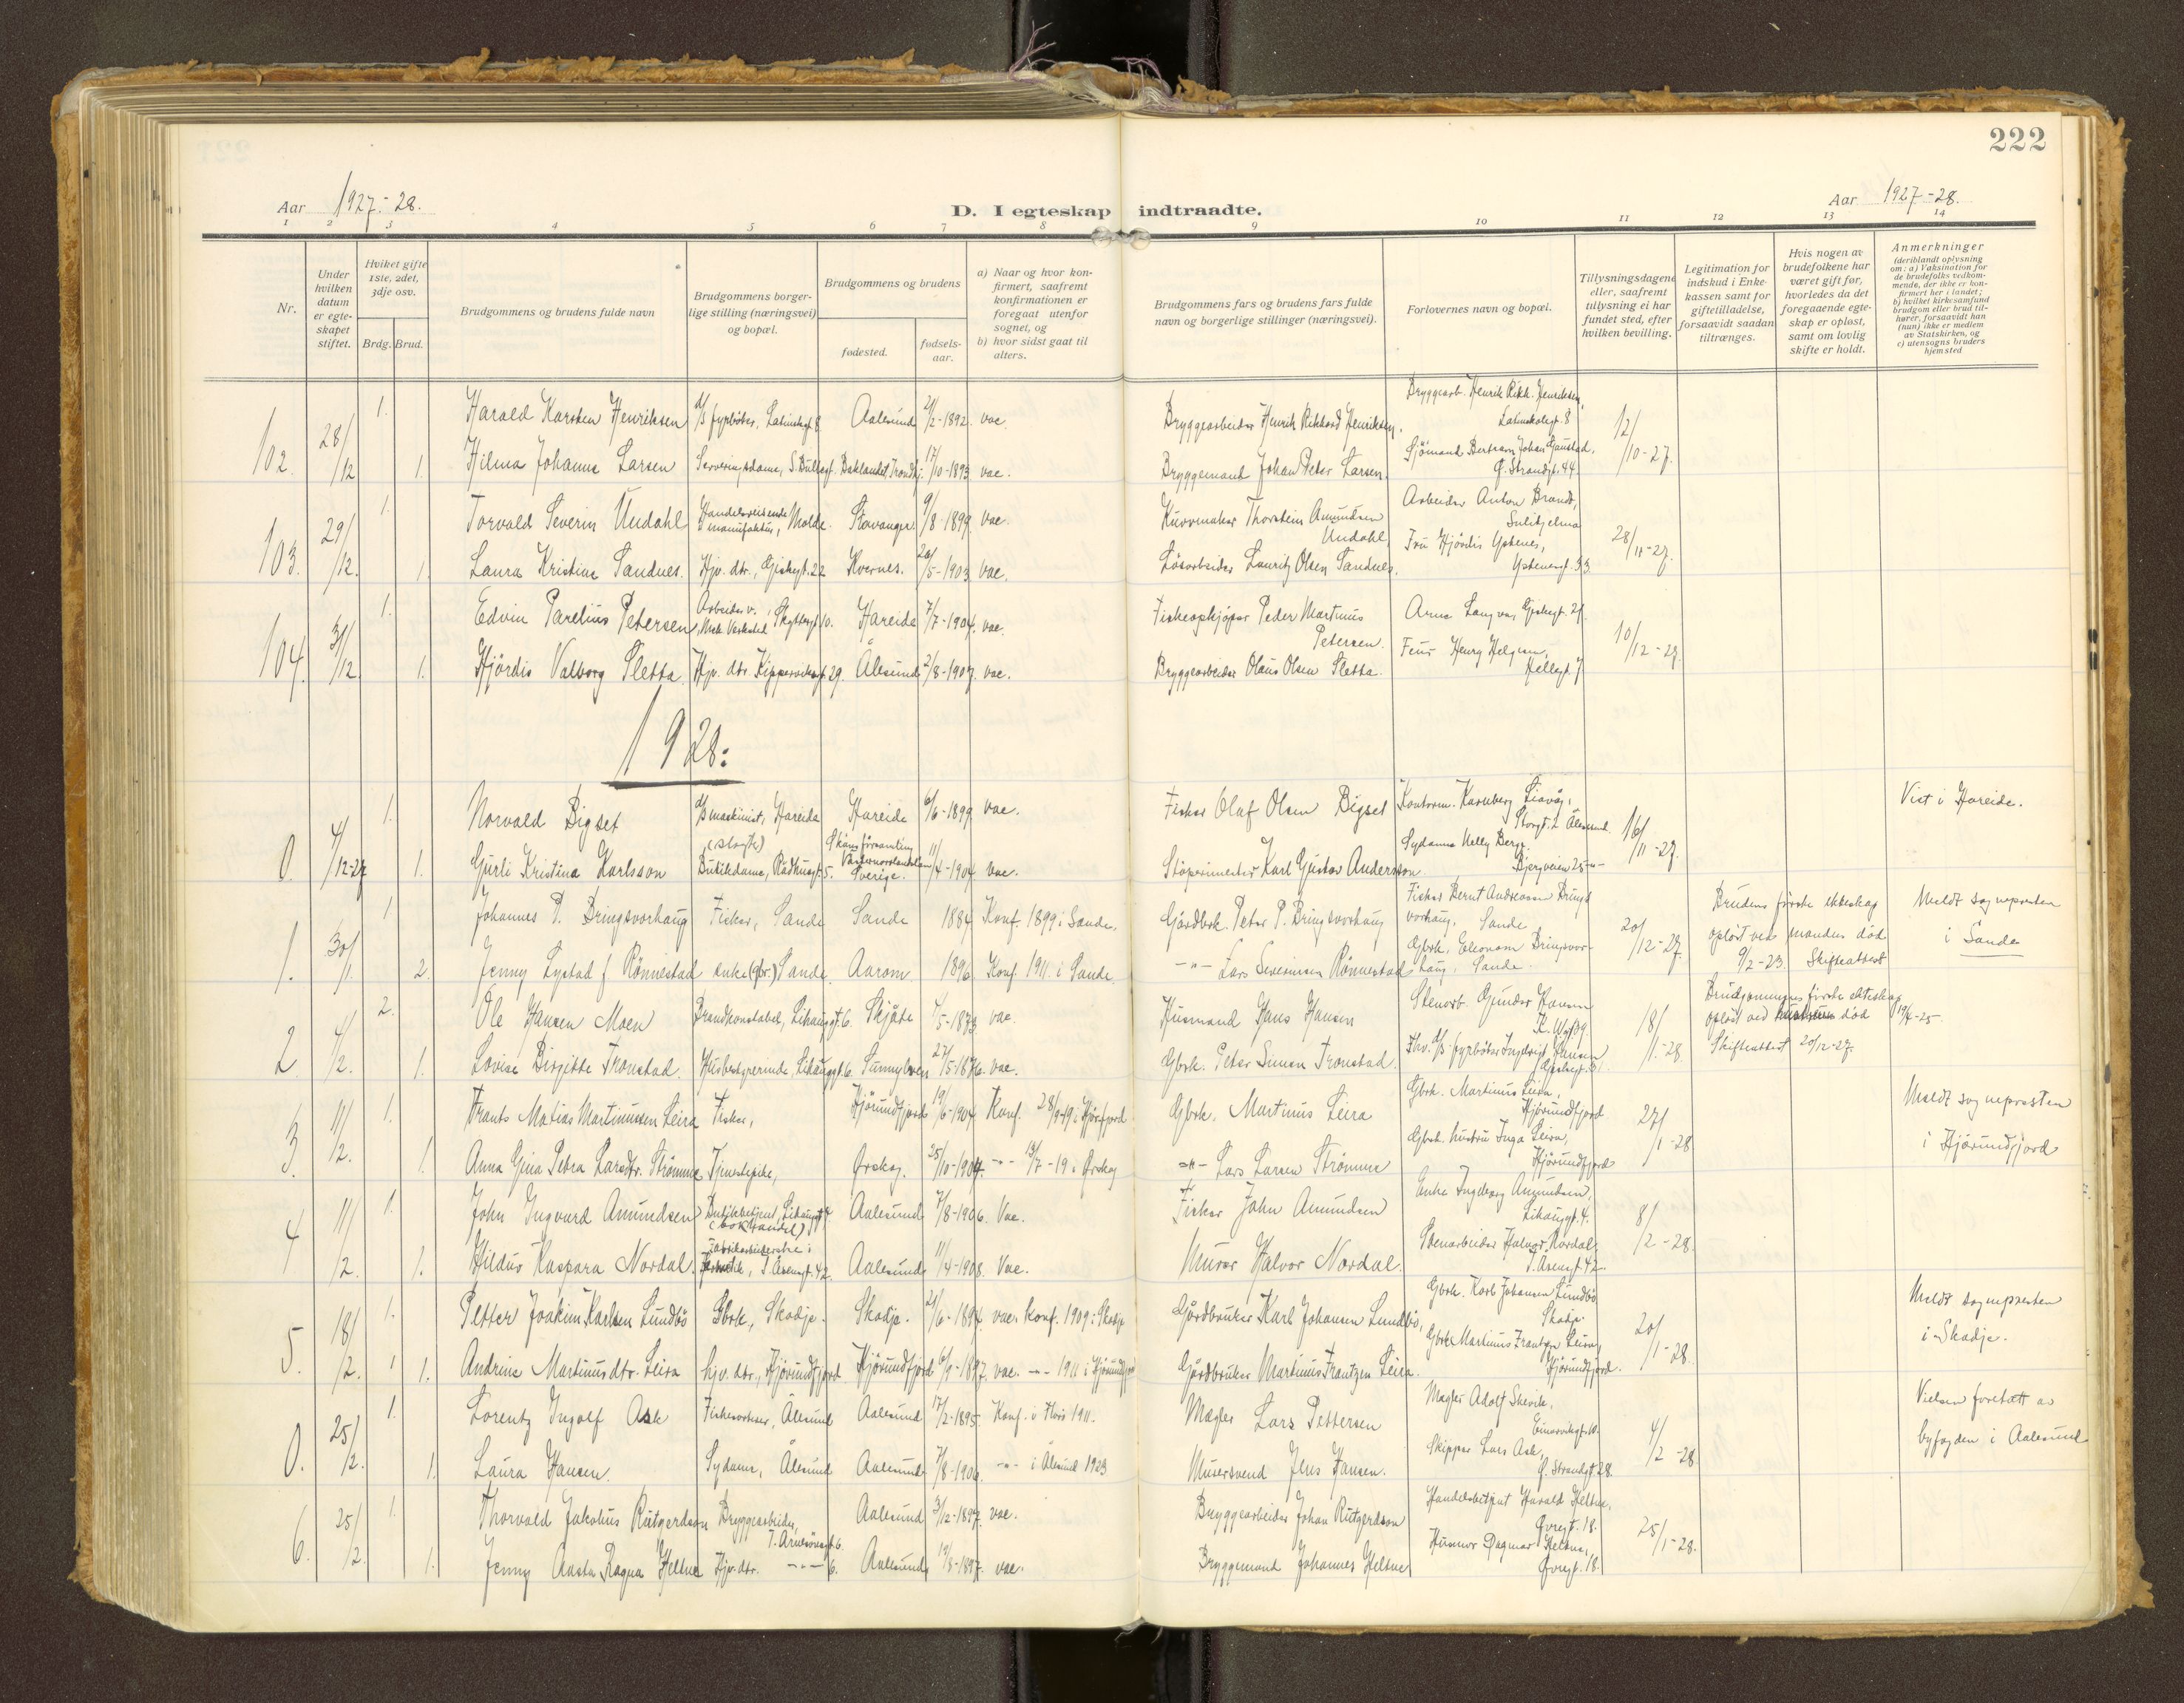 222
Aar 1927-28.
D. I egteskap indtraadte.
Aar 1927-28.
1 2 3 4 5 6 7 8 9 10 11 12 13 14
Nr.
Under hvilken datum er egteskapet stiftet.
Hvilket gifte 1ste, 2det, 3dje osv.
Brdg. Brud.
Brudgommens og brudens fulde navn
Brudgommens borgerlige stilling (næringsvei) og bopæl.
Brudgommens og brudens
fødested.
fødselsaar.
a) Naar og hvor konfirmert, saafremt konfirmationen er foregaat utenfor sognet, og
b) hvor sidst gaat til alters.
Brudgommens fars og brudens fars fulde navn og borgerlige stillinger (næringsvei).
Forlovernes navn og bopæl.
Tillysningsdagene eller, saafremt tillysning ei har fundet sted, efter hvilken bevilling.
Legitimation for indskud i Enkekassen samt for giftetilladelse, forsaavidt saadan tiltrænges.
Hvis nogen av brudefolkene har været gift før, hvorledes da det foregaaende egteskap er opløst, samt om lovlig skifte er holdt.
Anmerkninger (deriblandt oplysning om: a) Vaksination for de brudefolks vedkommende, der ikke er konfirmert her i landet; b) hvilket kirkesamfund brudgom eller brud tilhører, forsaavidt han (hun) ikke er medlem av Statskirken, og c) utensogns bruders hjemsted
102. 28/12 1. Harald Karsten Henriksen D/S fyrbøter, Latinskgt. 8 Aalesund 21/2-1892. vac. Bryggearbeider Henrik Rikhard Henriksen. Bryggearb. Henrik Rikh. Henriksen, Latinskolegt. 8 12/10-27.
1. Hilma Johanne Larsen Serveringsdame, S. Bullsgt. Baklandet, Trondhj. 17/10-1893 vac. Bryggemand Johan Peter Larsen. Sjömand Bertram Johan Gaustad, Ø. Strandgt. 44.
103. 29/12. 1. Torvald Severin Undahl Handelsreisende manufaktur, Molde. Stavanger. 9/8-1899. vac. Kurvmaker Thorstein Amundsen Undahl. Arbeider Anton Brandt, Sulitjelma 28/11-27.
1. Laura Kristine Sandnes. Hjv. dtr., Giskegt. 22 Kvernes. 26/5-1903 vac. Lösarbeider Lauritz Olsen Sandnes. Fru Hjördis Ystenes, Ystenesgt. 33.
104. 31/12. 1. Edvin Parelius Petersen Arbeider v. Mek. Verksted, Skyttergt. 10. Hareide 7/7-1904. vac. Fiskeopkjöper Peder Martinus Petersen. Arne Langva, Giskegt. 21. 10/12-27.
1. Hjördis Valborg Sletta. Hjv. dtr. Kipperviksgt. 29. Ålesund 2/8-1907. vac. Bryggearbeider Olaus Olsen Sletta. Henry Helgesen, Hellegt. 7
1928:
0. 4/12-27 1. Norvald Bigset D/S maskinist, Hareide Hareide 6/6-1899 vac. Fisker Oluf Olsen Bigset Kontorm. Karnberg Liavåg, Storgt. 2 Ålesund. 16/11-27. Viet i Hareide.
1. Gurli Kristina Karlsson Butikdame, Rådhusgt. 5. Skönsförsamling Västernorrlandslän Sverige. 11/4-1904 vac. Støperimester Karl Gustav Andersson Sydame Nelly Berge. Bjergveien 25 -"-
1. 30/1. 1. Johannes P. Bringsvorhaug Fisker, Sande Sande 1884 Konf. 1899 i Sande. Gårdbrk. Peter P. Bringsvorhaug Fisker Bernt Andreasen Bringsvorhaug, Sande 20/12-27. Brudens første ekteskap opløst ved mandens død 9/2-23. Skifteattest Meldt sognepresten i Sande
2. Jenny Lystad f. Rönnestad enke (gbr.) Sande. Aarom 1896 Konf. 1911 i Sande -"- Lars Severinsen Rönnestad Gbrk. Elenom Bringsvorhaug, Sande.
2 4/2. 2. Ole Hansen Moen Brandkonstabel, Lihauggt. 6. Skjåk 7/5-1873 vac. Husmand Hans Hansen Stenarb. Gunder Hansen 18/1-28. Brudgommens første ekteskap opløst ved hustruens død 19/4-25. Skifteattest 20/12-27.
1. Lovise Birgitte Tronstad. Husbestyrerinde, Lihauggt. 6. Sunnylven 27/5-1876. vac. Gbrk. Peter Simen Tronstad. Fhv. D/S fyrbøter Ingebrigt Hansen
3 11/2. 1. Frants Matias Martinussen Leira Fisker, Hjörundfjord 19/6-1904 Konf. 28/9-19 i Hjörfjord Gbrk. Martinus Leira Gbrk. Martinus Leira, Hjörundfjord 27/1-28 Meldt sognepresten i Hjörundfjord
1. Anna Gina Petra Larsdtr. Strömme Tjenestepike, Ørskog. 25/10-1904. -"- 13/7-19 i Ørskog -"- Lars Larsen Strömme Gbrk. hustru Inga Leira, Hjörundfjord
4 11/2. 1. John Ingvard Amundsen Butikbetjent, Lihauggt. 4 (bokhandel) Aalesund 7/8-1906. Vac. Fisker John Amundsen Enke Ingeborg Amundsen, Lihauggt. 4. 8/2-28.
1. Hildur Kaspara Nordal. Fabrikarbeiderske i, S. Aasengt. 42. Aalesund 11/4-1908. Vac. Murer Halvor Nordal. Stenarbeider Halvor Nordal, S. Asengt 42
5. 18/2. 1. Petter Joakim Karlsen Lundbö Gbrk., Skodje. Skodje. 21/6-1894. vac. Konf. 1909 i Skodje Gårdbruker Karl Johansen Lundbö, Gbrk. Karl Johansen Lundbö Skodje. 20/1-28. Meldt sognepresten i Skodje.
1 1. Andrine Martinusdtr. Leira hjv. dtr., Hjörundfjord. Hjörundfjord 6/9-1897. vac. -"- 1911 i Hjörundfjord Gårdbruker Martinus Frantzen Leira. Gbrk. Martinus Frantzen Leira, Hjörundfjord.
0. 25/2. 1. Lorentz Ingolf Ask Fiskeeksportør, Ålesund Aalesund 17/2-1895. Konf. i Florø 1911. Mægler Lars Pettersen Mægler Adolf Skevik, Einarvikgt. 10. 4/2-28 Vielsen foretatt av byfogden i Aalesund
1. Laura Hansen. Sydame, Ålesund Aalesund 7/8-1906. -"- i Ålesund 1923 Murersvend Jens Hansen. Skipper Lars Ask, Ø. Strandgt. 28.
6. 25/2. 1. Thorvald Jakobus Rutgerdson Bryggearbeider, T. Arnesöngt. 6. Aalesund 3/12-1897. vac. Bryggearbeider Johan Rutgerdson Handelsbetjent Harald Heltne, Øvregt. 18. 25/1-28.
1. Jenny Aasta Ragna Heltne Hjv. dtr. -"- 6. Aalesund 19/8-1897. vac. Bryggemand Johannes Heltne Husmor Dagmar Heltne, Øvregt. 18.